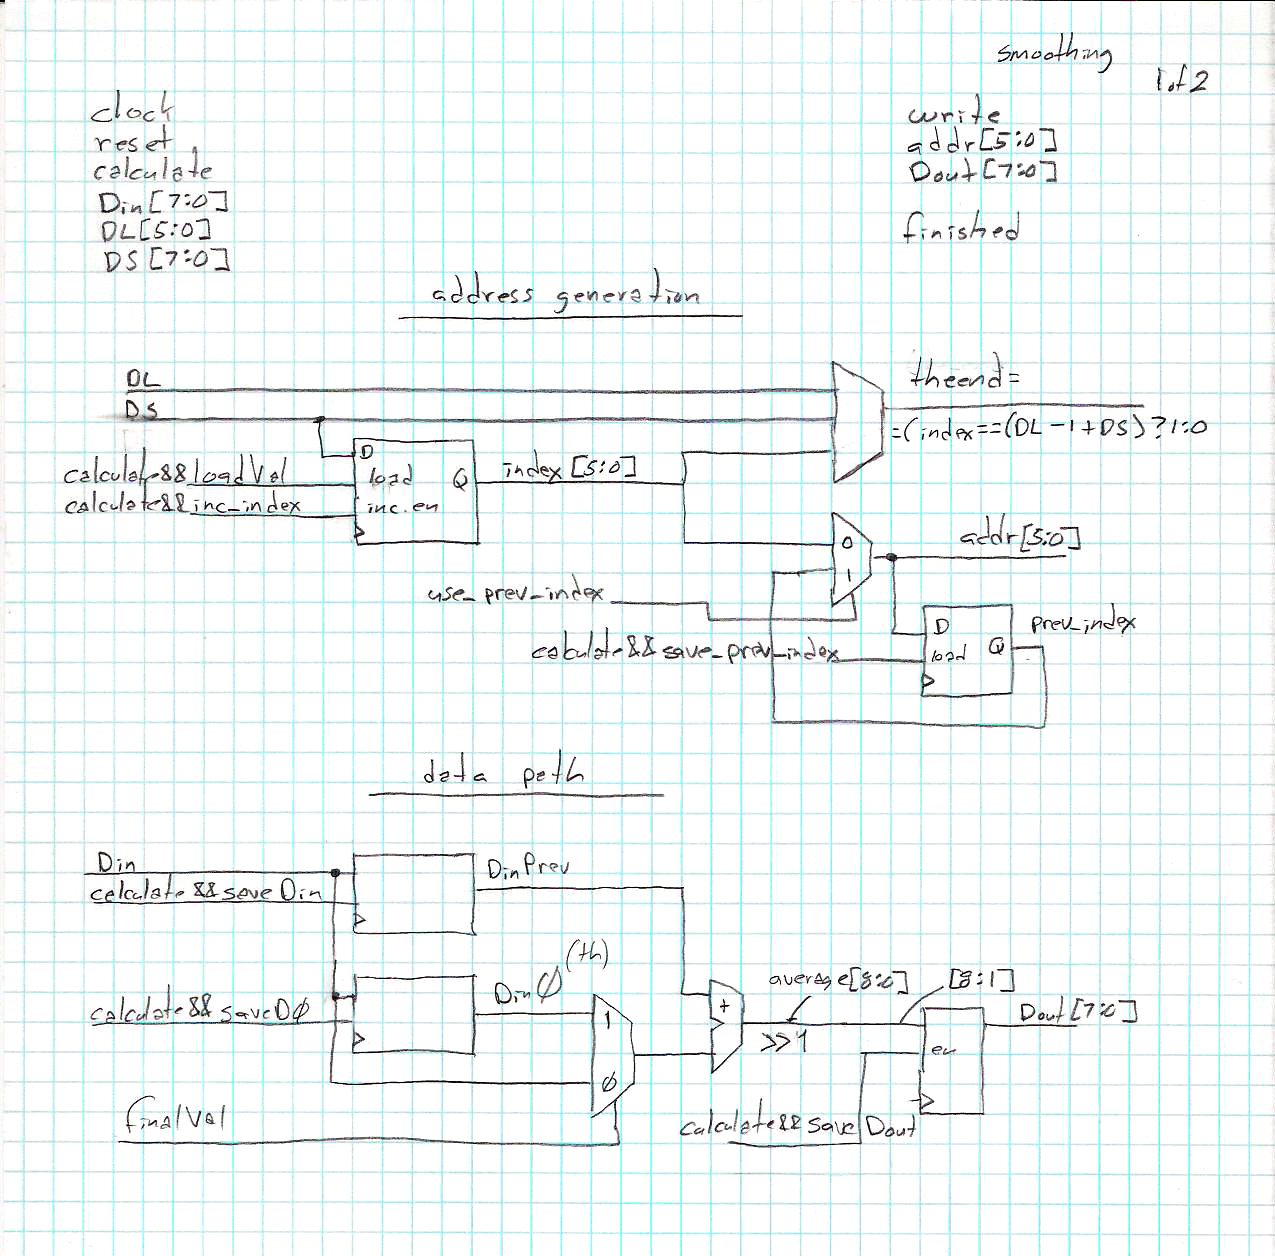 smoothing
1 of 2
clock
reset
calculate
Din[7:0]
DL[5:0]
DS[7:0]
write
addr[5:0]
Dout[7:0]
finished
address generation
DL
DS
theend=
=(index==(DL-1+DS)?1:0
calculate&&loadVal
calculate&&inc_index
D
load
inc.en
Q
index[5:0]
0
1
addr[5:0]
use_prev_index
calculate&&save_prev_index
D
load
Q
prev_index
data path
Din
calculate&&saveDin
DinPrev
calculate&&saveDØ
DinØ(th)
1
Ø
finalVal
+
average[8:0]
>>1
[8:1]
en
Dout[7:0]
calculate&&saveDout